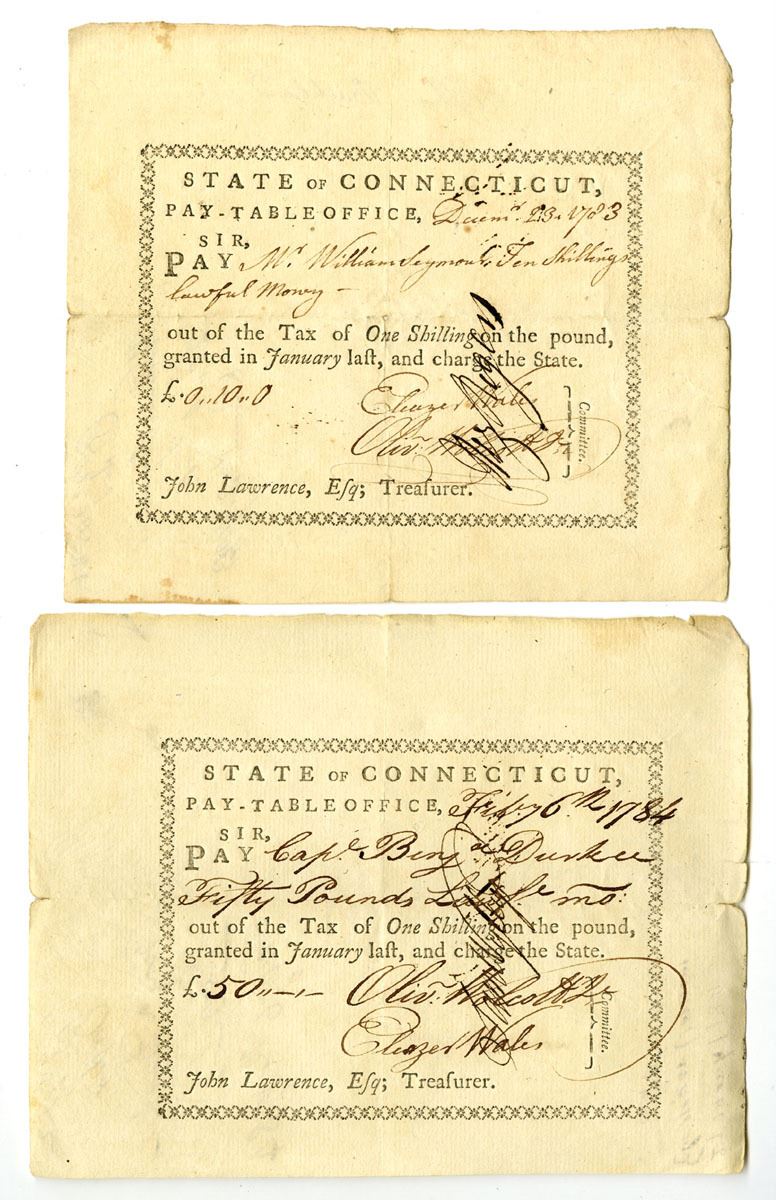 STATE OF CONNECTICUT,
PAY-TABLE OFFICE, Decemr. 23. 1783
SIR,
PAY Mr. William Seymour, Ten Shillings
lawful Money —
out of the Tax of One Shilling on the pound,
granted in January laſt, and charge the State.
£. 0,, 10,, 0
Eleazer Wales
Olivr. Wolcott Jr.
Committee.
John Lawrence, Eſq; Treaſurer.
STATE OF CONNECTICUT,
PAY-TABLE OFFICE, 6th 1784
SIR,
PAY Capt. Benja Durkee
Fifty Pounds mo:
out of the Tax of One Shilling on the pound,
granted in January laſt, and charge the State.
£. 50,,—,,—
Olivr. Wolcott Jr
Eleazer Wales
Committee.
John Lawrence, Eſq; Treaſurer.